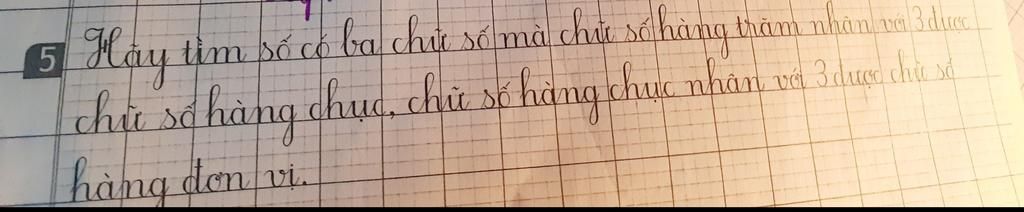 5 Hãy tìm số có ba chữ số mà chữ số hàng trăm nhân với 3 được
chữ số hàng chục, chữ số hàng chục nhân với 3 được chữ số
hàng đơn vị.